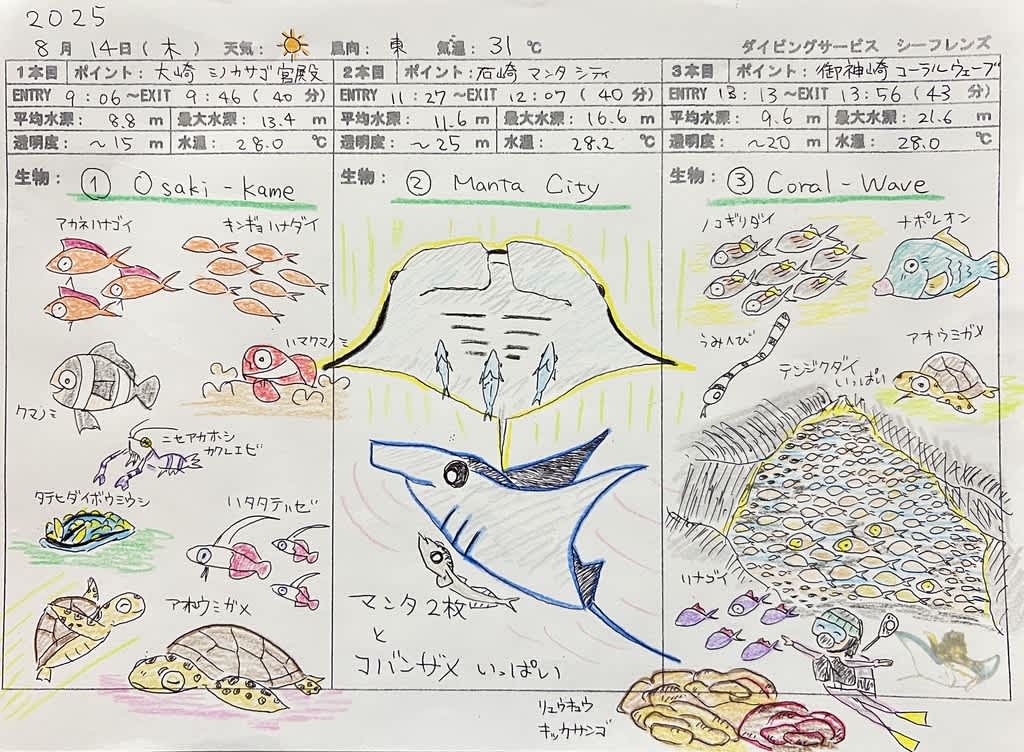 2025
8月 14日(木) 天気: 風向: 東 気温: 31 ℃ ダイビングサービス シーフレンズ
1本目 ポイント: 大崎 ミノカサゴ宮殿
ENTRY 9:06 ~EXIT 9:46 (40 分)
平均水深: 8.8 m 最大水深: 13.4 m
透明度: ~15 m 水温: 28.0 ℃
生物: ① Osaki-kame
アカネハナゴイ
キンギョハナダイ
ハマクマノミ
クマノミ
ニセアカホシ
カクレエビ
タテヒダイボウミウシ
ハタタテハゼ
アオウミガメ
2本目 ポイント: 石崎 マンタシティ
ENTRY 11:27 ~EXIT 12:07 (40 分)
平均水深: 11.6 m 最大水深: 16.6 m
透明度: ~25 m 水温: 28.2 ℃
生物: ② Manta City
マンタ2枚
と
コバンザメ いっぱい
3本目 ポイント: 御神崎 コーラルウェーブ
ENTRY 13:13 ~EXIT 13:56 (43 分)
平均水深: 9.6 m 最大水深: 21.6 m
透明度: ~20 m 水温: 28.0 ℃
生物: ③ Coral-Wave
ノコギリダイ
ナポレオン
うみへび
アオウミガメ
テンジクダイ
いっぱい
ハナゴイ
リュウキュウ
キッカサンゴ